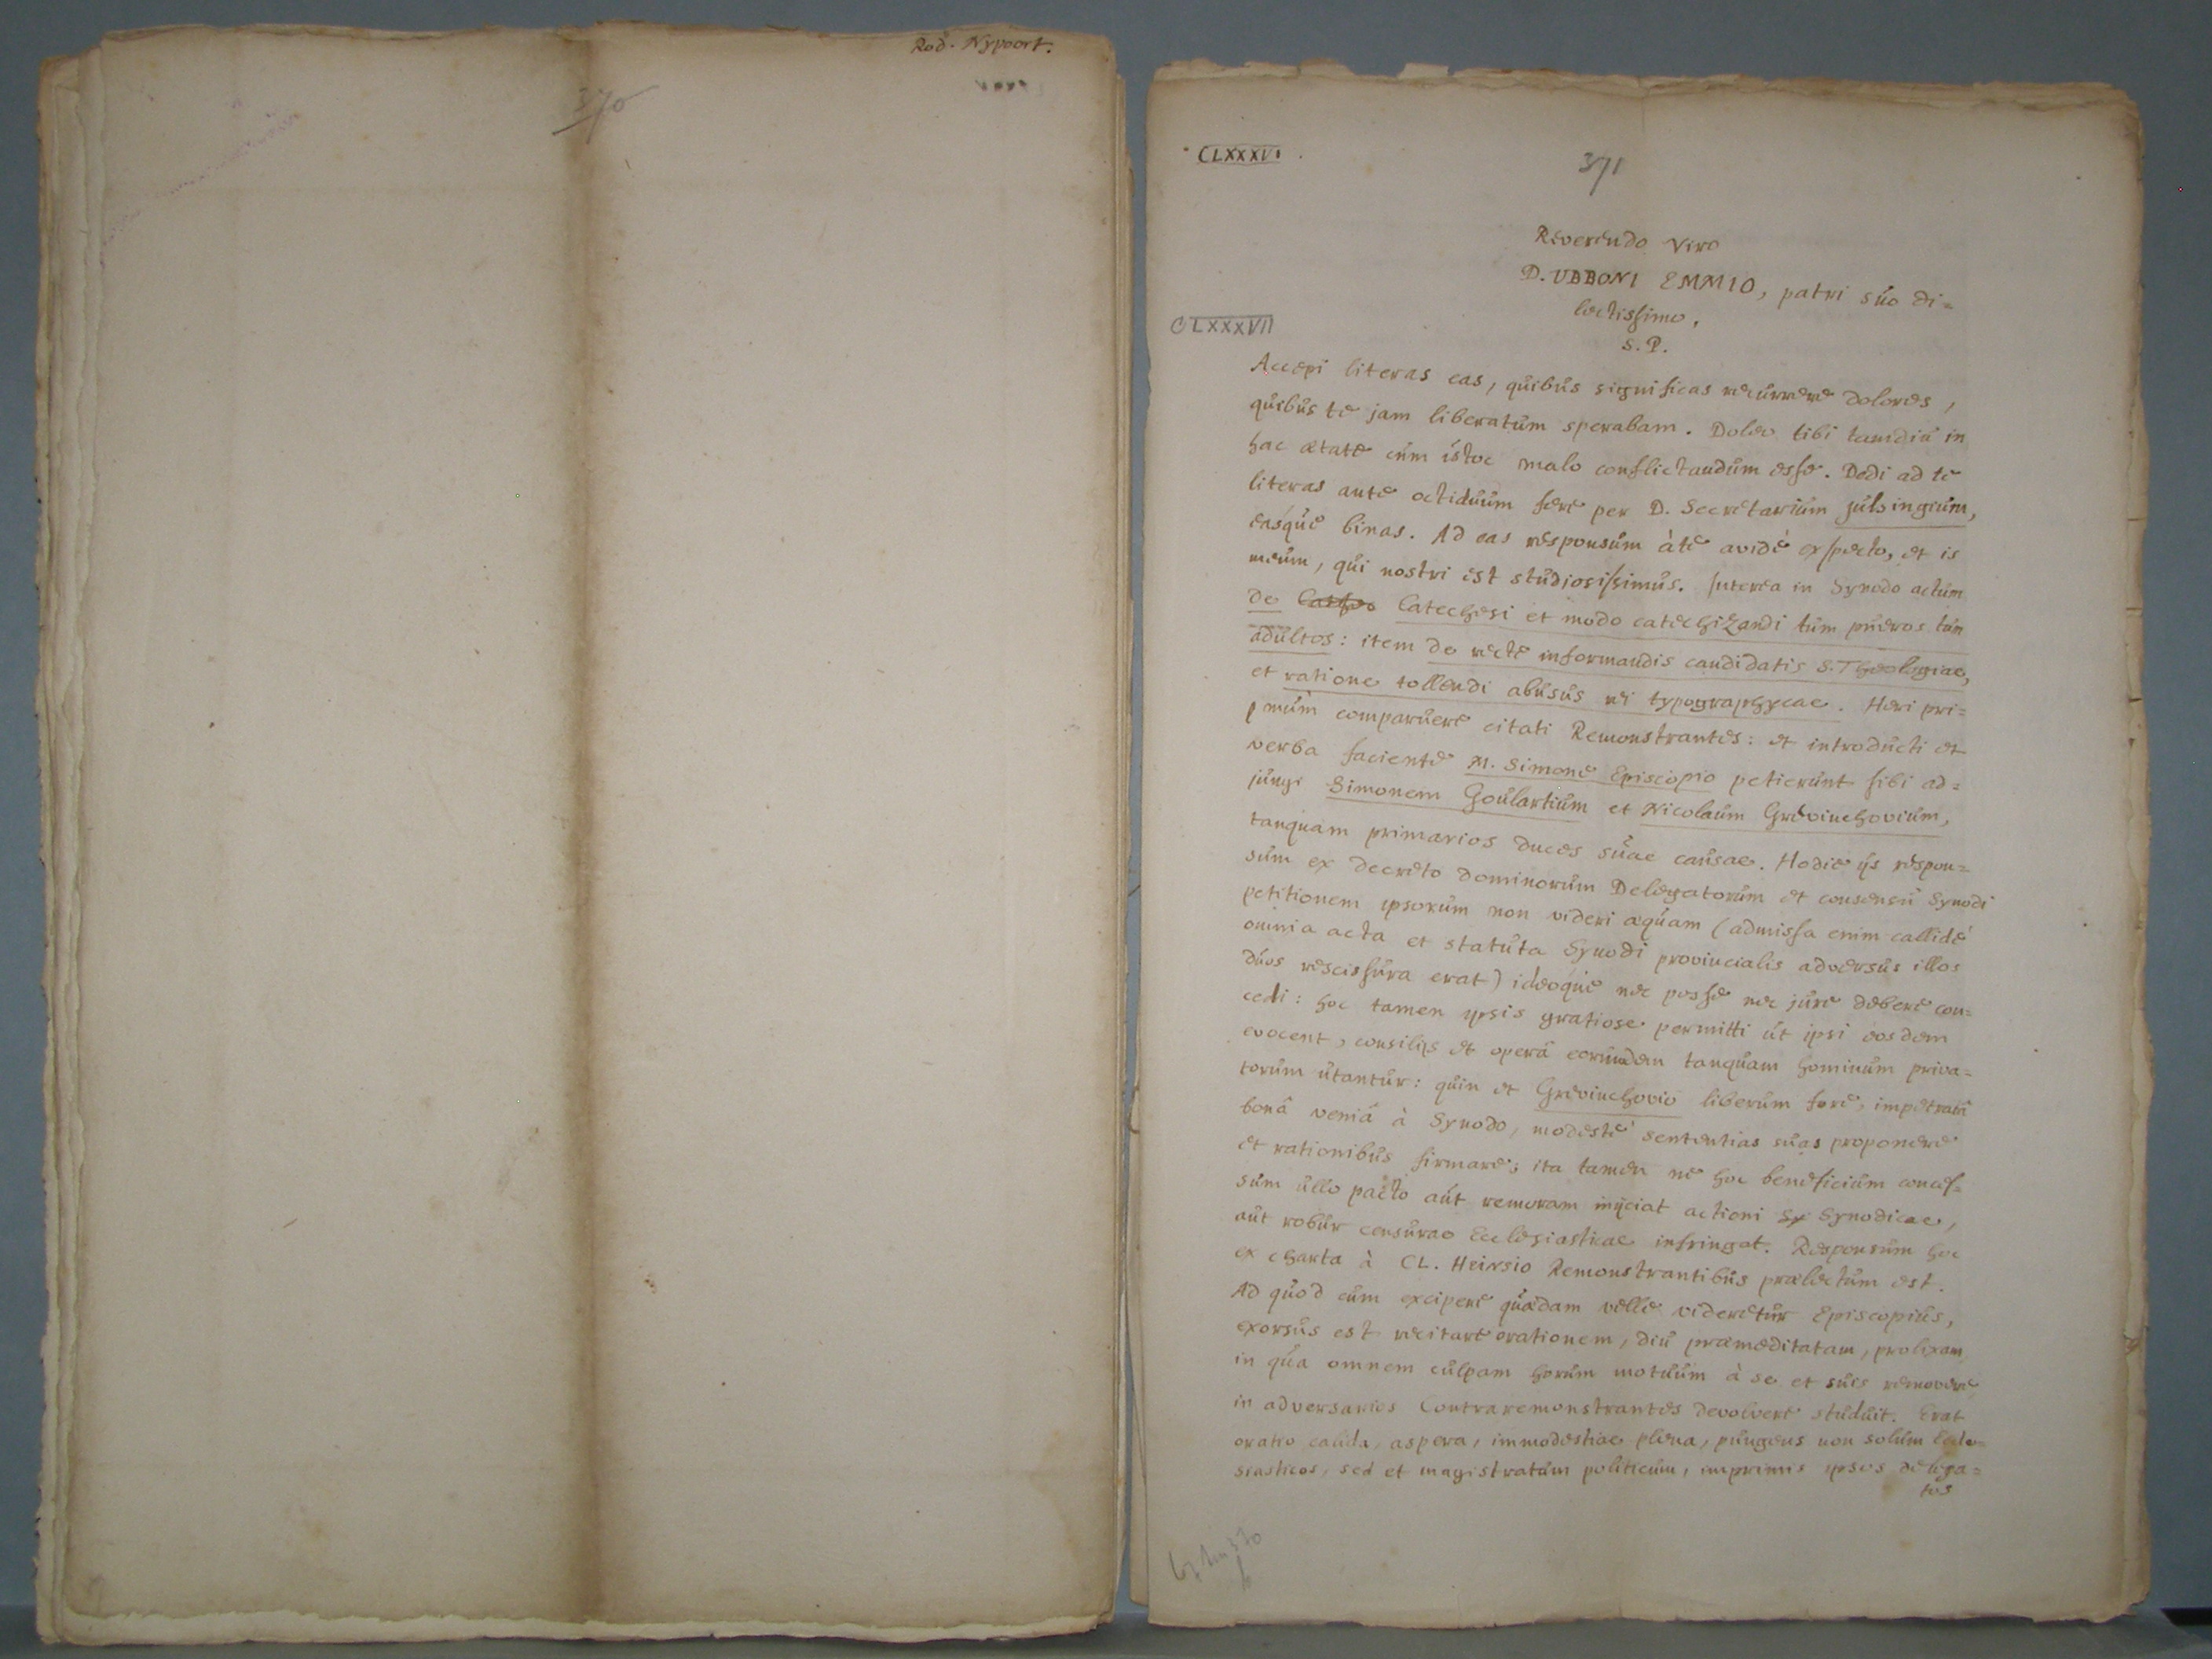 Rod. Nypoort.
370
CLXXXVI
371
Reverendo Viro
D. UBBONI EMMIO, patri suo di=
lectissimo,
S. P.
CLXXXVII
Accepi literas eas, quibus significas recurrere dolores,
quibus te jam liberatum sperabam. Doleo tibi tamdiu in
hac ætate cum istoc malo conflictandum esse. Dedi ad te
literas ante octiduum fere per D. Secretarium Julsingium,
easque binas. Ad eas responsum à te avidè exspecto, et is
meum, qui nostri est studiosissimus. Interea in Synodo actum
de Catechesi et modo catechizandi tùm pueros tùm
adultos: item de recte informandis candidatis S. Theologiae,
et ratione tollendi abusus rei typographycae. Heri pri=
mùm comparuere citati Remonstrantes: et introducti et
verba faciente M. Simone Episcopio petierunt sibi ad=
jungi Simonem Goulartium et Nicolaum Grevinchovium,
tanquam primarios duces suae causae. Hodie ijs respon=
sum ex decreto Dominorum Delegatorum et consensu Synodi
petitionem ipsorum non videri æquam (admissa enim callidè
omnia acta et statuta Synodi provincialis adversus illos
duos rescissura erat) ideoque nec posse nec jure debere con=
cedi: hoc tamen ipsis gratiose permitti ut ipsi eosdem
evocent, consilijs et operâ eorundem tanquam hominum priva=
torum utantur: quin et Grevinchovio liberum fore, impetratâ
bonâ veniâ à Synodo, modestè sententias suas proponere
et rationibus firmare; ita tamen ne hoc beneficium conces=
sum ullo pacto aut remoram injiciat actioni Sy Synodicae,
aut robur censurae Ecclesiasticae infringat. Responsum hoc
ex charta à CL. Heinsio Remonstrantibus prælectum est.
Ad quod cum excipere quædam velle videretur Episcopius,
exorsus est recitare orationem, diu præmeditatam, prolixam,
in qua omnem culpam horum motuum à se et suis removere,
in adversarios Contraremonstrantes devolvere studuit. Erat
oratio calida, aspera, immodestiae plena, pungens non solùm Eccle=
siasticos, sed et magistratum politicum, imprimis ipsos delega=
tos